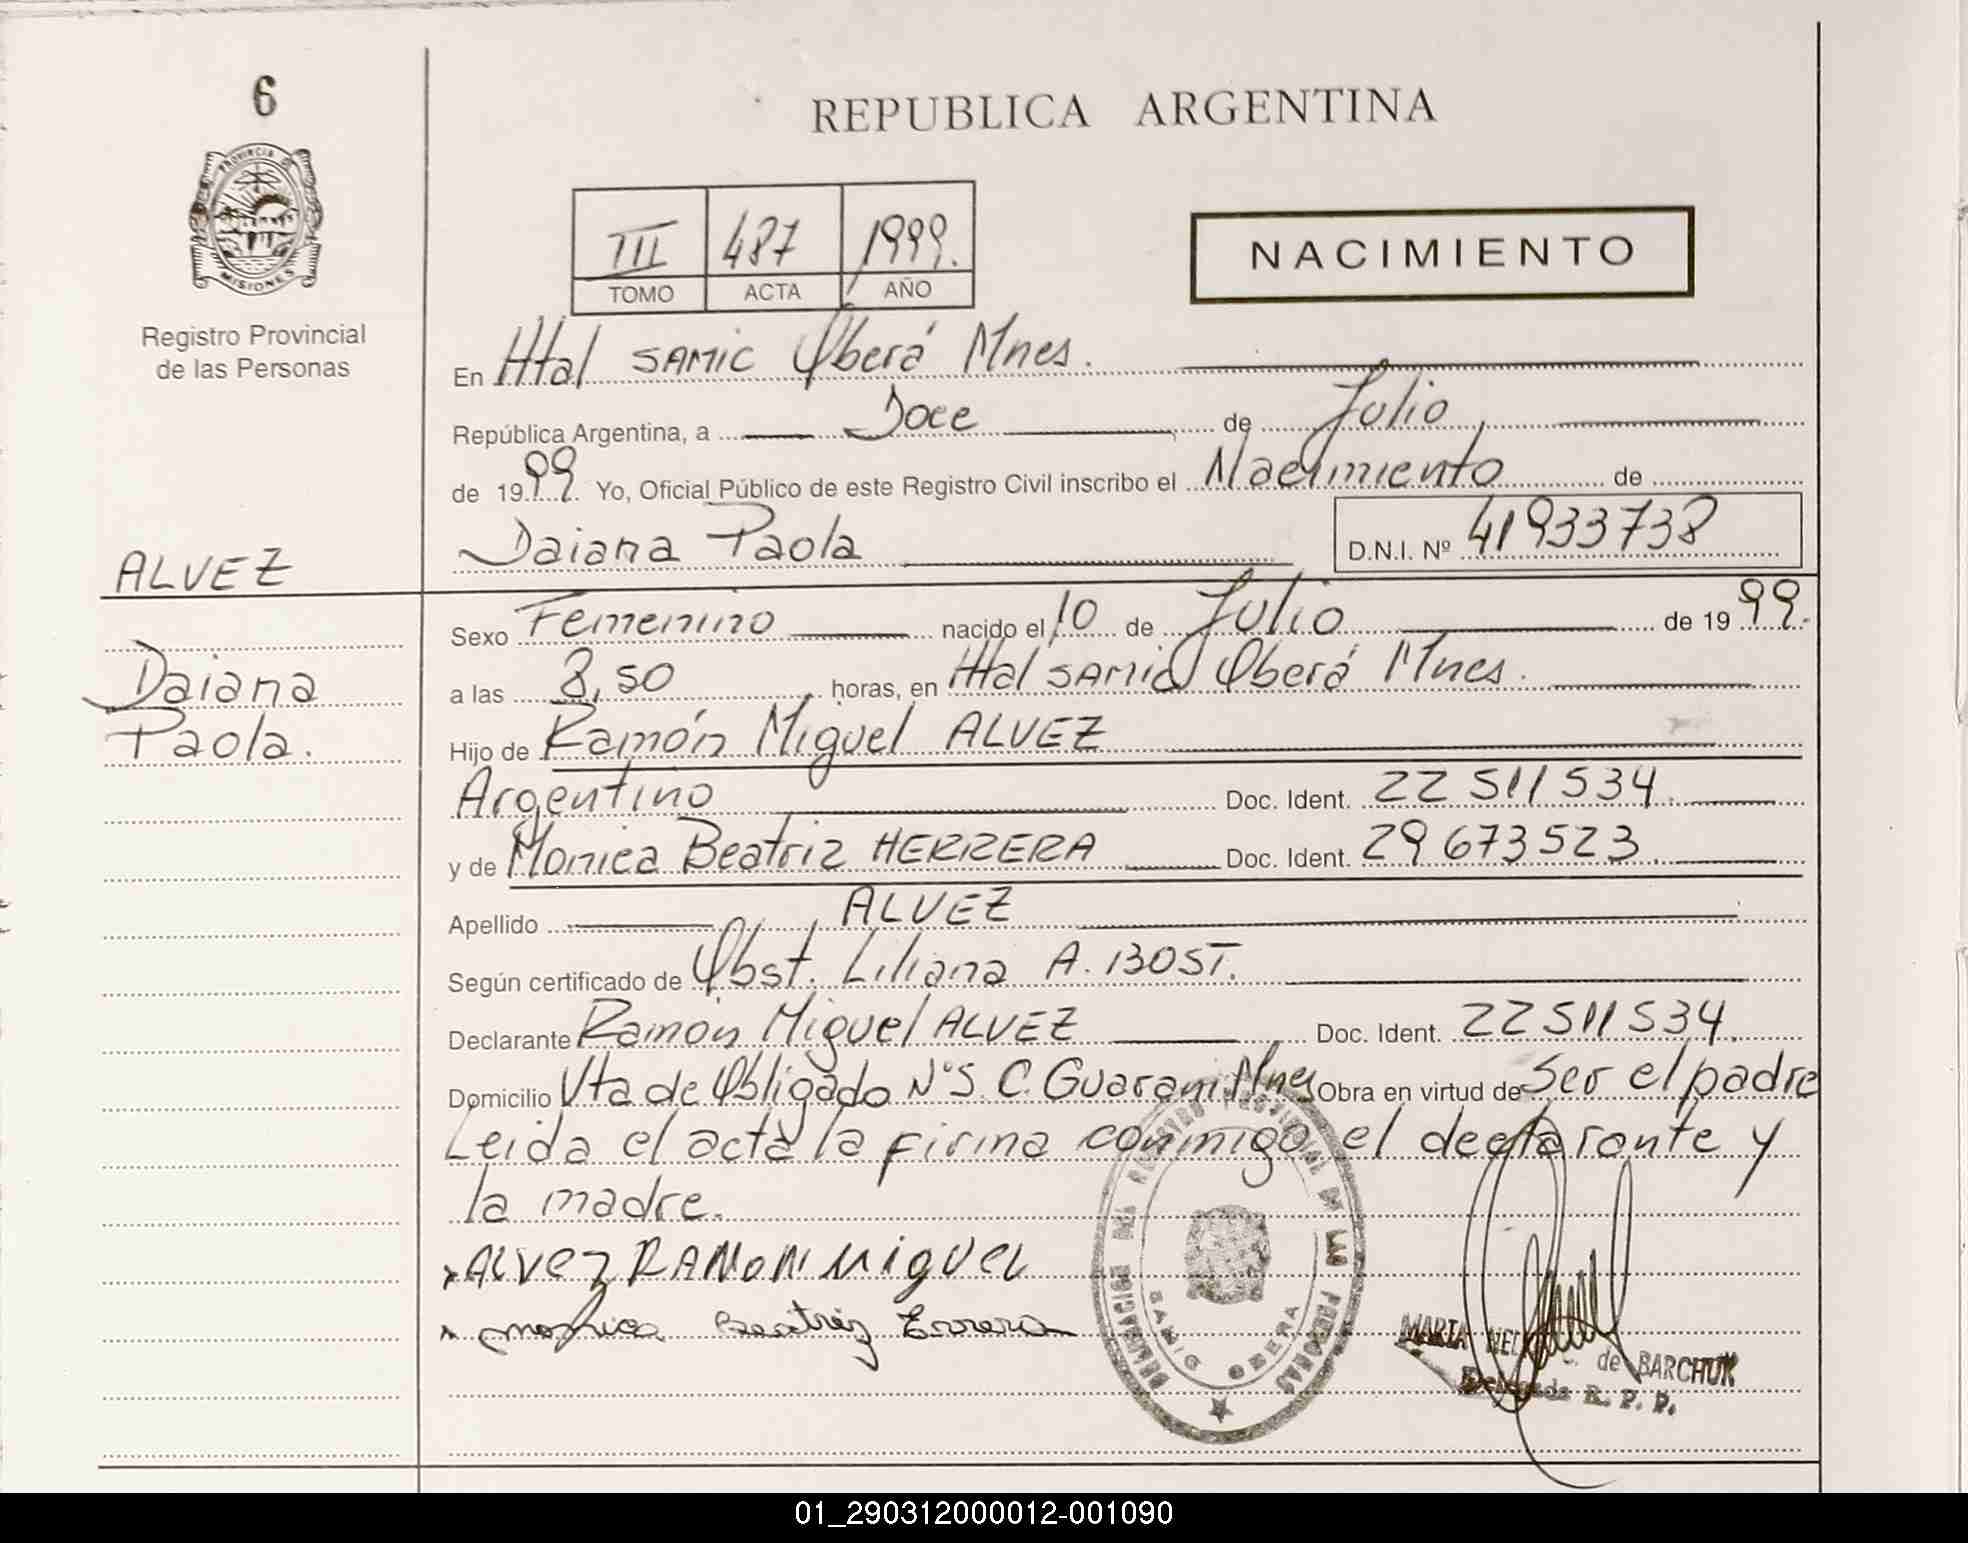 6
REPUBLICA ARGENTINA
PROVINCIA DE
MISIONES
III 487 1999.
TOMO ACTA AÑO
NACIMIENTO
Registro Provincial
de las Personas
En Htal SAMIC Oberá Mnes.
República Argentina, a Doce de Julio
de 1999. Yo, Oficial Público de este Registro Civil inscribo el Nacimiento de
Daiana Paola D.N.I. Nº 41933738
ALVEZ
Daiana
Paola.
Sexo Femenino nacido el 10 de Julio de 1999.
a las 8,50 horas, en Htal SAMIC Oberá Mnes.
Hijo de Ramón Miguel ALVEZ
Argentino Doc. Ident. 22 511 534.
y de Monica Beatriz HERRERA Doc. Ident. 29 673523.
Apellido ALVEZ
Según certificado de Obst. Liliana A. BOST.
Declarante Ramón Miguel ALVEZ Doc. Ident. 22511534.
Domicilio Vta de Obligado N°S. C. Guarani Mnes Obra en virtud de Ser el padre
Leida el acta la firma conmigo el declarante y
la madre.
ALVEZ RAMON MIGUEL
Beatriz Errera
REGISTRO PROVINCIAL DE LAS PERSONAS
SAMIC OBERA
MARIA de BARCHUK
Delegada R. P. P.
01_290312000012-001090